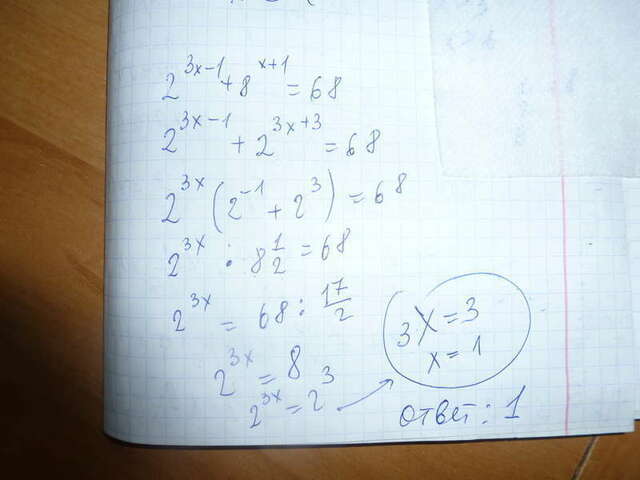 2^{3x-1} + 8^{x+1} = 68
2^{3x-1} + 2^{3x+3} = 68
2^{3x} (2^{-1} + 2^{3}) = 68
2^{3x} : 8 1/2 = 68
2^{3x} = 68 : 17/2
2^{3x} = 8
2^{3x} = 2^{3}
3x = 3
x = 1
ответ: 1